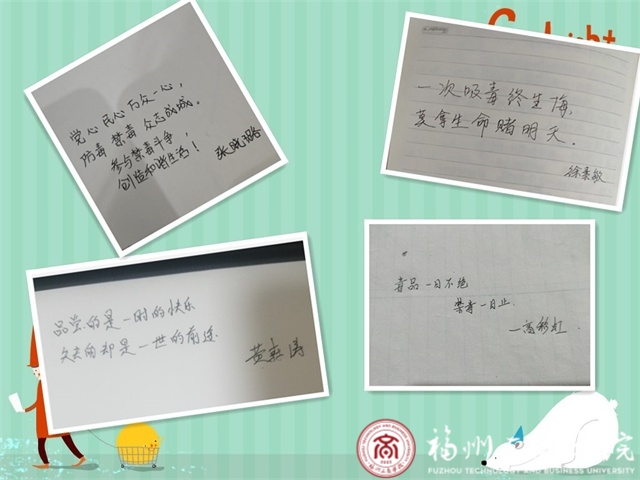 党心民心万众一心,
防毒禁毒众志成城。
参与禁毒斗争,
创造和谐生活!
张晓璐
一次吸毒终生悔,
莫拿生命赌明天.
徐素敏
品尝的是一时的快乐
失去的却是一世的前途
黄燕涛
毒品一日不绝
禁毒一日止.
一高彩虹.
福州
院
FUZHOU TECHNOLOGY AND BUSINESS UNIVERSITY